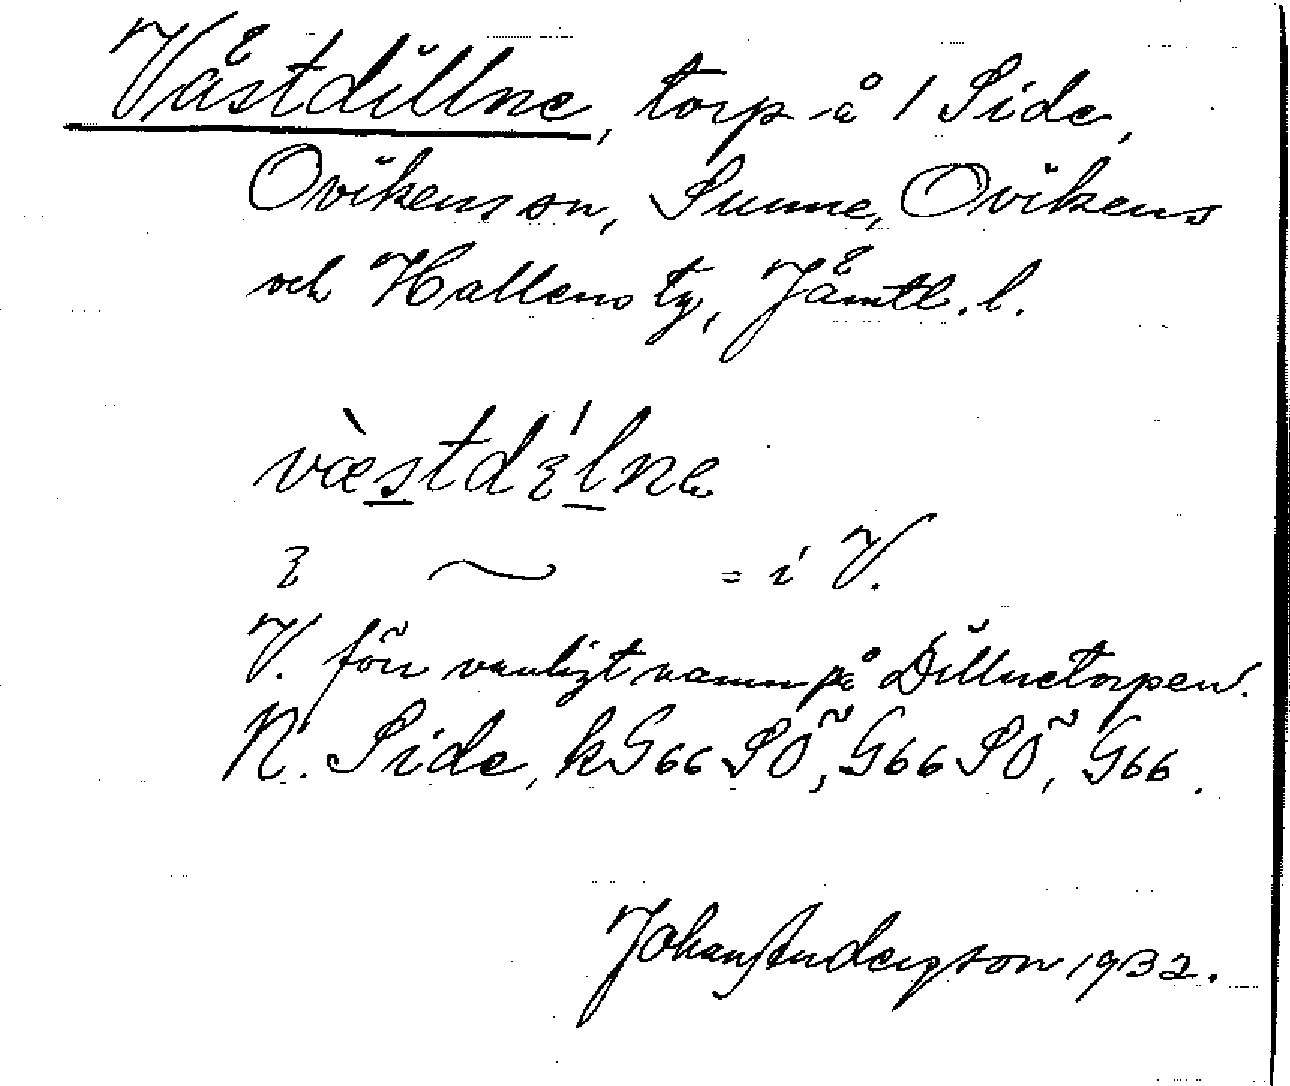 Västdillne, torp å 1 Side,
Ovikens sn, Sunne, Ovikens
och Hallens tg, Jämtl. l.
væstdılne
~ = i V.
V. förr vanligt namn på Dillnetorpen.
N. Side, k G66 SÖ, G66 SÖ, G66.
Johan Anderzson 1932.